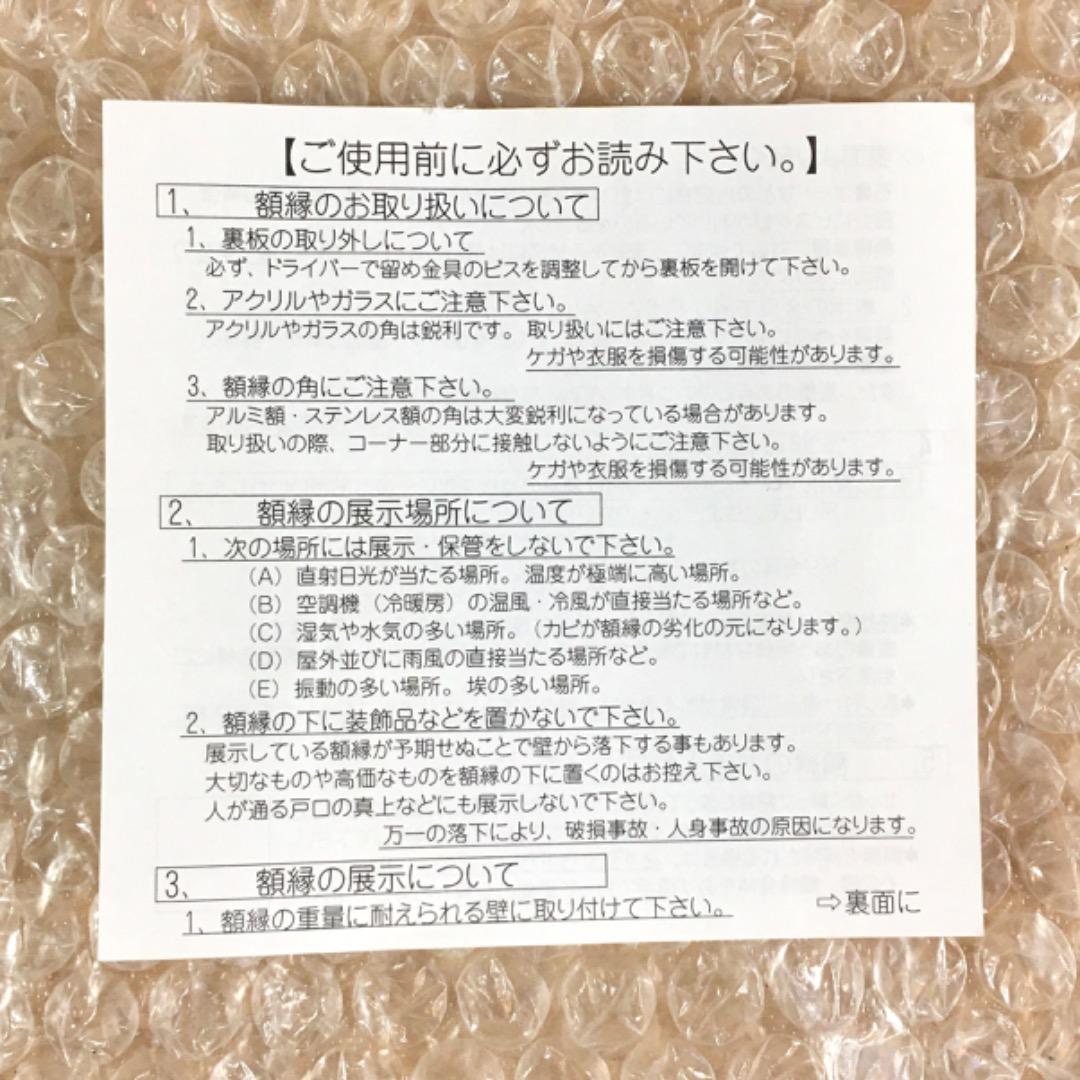 【ご使用前に必ずお読み下さい。】
1、 額縁のお取り扱いについて
1、裏板の取り外しについて
必ず、ドライバーで留め金具のビスを調整してから裏板を開けて下さい。
2、アクリルやガラスにご注意下さい。
アクリルやガラスの角は鋭利です。取り扱いにはご注意下さい。
ケガや衣服を損傷する可能性があります。
3、額縁の角にご注意下さい。
アルミ額・ステンレス額の角は大変鋭利になっている場合があります。
取り扱いの際、コーナー部分に接触しないようにご注意下さい。
ケガや衣服を損傷する可能性があります。
2、 額縁の展示場所について
1、次の場所には展示・保管をしないで下さい。
(A) 直射日光が当たる場所。温度が極端に高い場所。
(B) 空調機(冷暖房)の温風・冷風が直接当たる場所など。
(C) 湿気や水気の多い場所。(カビが額縁の劣化の元になります。)
(D) 屋外並びに雨風の直接当たる場所など。
(E) 振動の多い場所。埃の多い場所。
2、額縁の下に装飾品などを置かないで下さい。
展示している額縁が予期せぬことで壁から落下する事もあります。
大切なものや高価なものを額縁の下に置くのはお控え下さい。
人が通る戸口の真上などにも展示しないで下さい。
万一の落下により、破損事故・人身事故の原因になります。
3、 額縁の展示について
1、額縁の重量に耐えられる壁に取り付けて下さい。
⇨裏面に